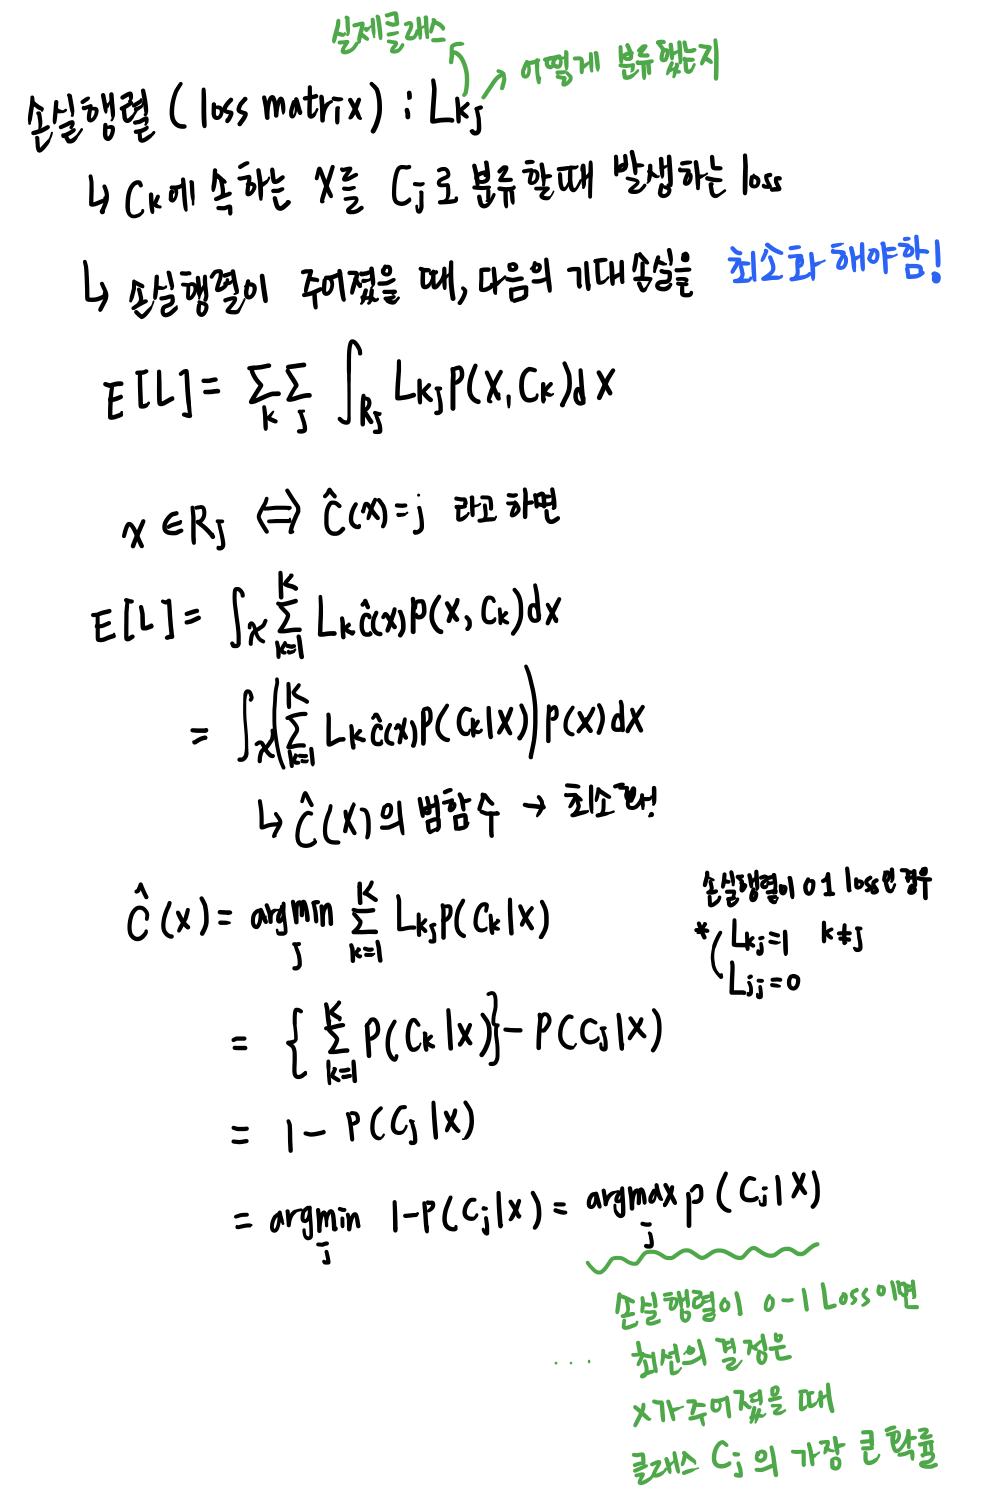 실제클래스
어떻게 분류했는지
손실행렬 (loss matrix) : Lkj
↳ Ck에 속하는 X를 Cj로 분류할때 발생하는 loss
↳ 손실행렬이 주어졌을 때, 다음의 기대손실을 최소화해야함!
E[L] = ∑k ∑j ∫Rj Lkj P(X, Ck)dX
x ∈ Rj ⟺ Ĉ(x) = j 라고하면
E[L] = ∫χ ∑k=1^K LkĈ(x) P(x, Ck)dx
= ∫χ (∑k=1^K LkĈ(x) P(Ck|X)) P(x)dX
↳ Ĉ(X)의 범함수 → 최소화!
Ĉ(x) = argmin j ∑k=1^K Lkj P(Ck|x)
손실행렬이 0 1 loss인 경우
* Lkj=1 k≠j
Ljj=0
= { ∑k=1^K P(Ck|x)} - P(Cj|X)
= 1 - P(Cj|X)
= argmin j 1-P(Cj|x) = argmax j P(Cj|X)
손실행렬이 0-1 Loss이면
... 최선의 결정은
x가 주어졌을 때
클래스 Cj의 가장 큰 확률